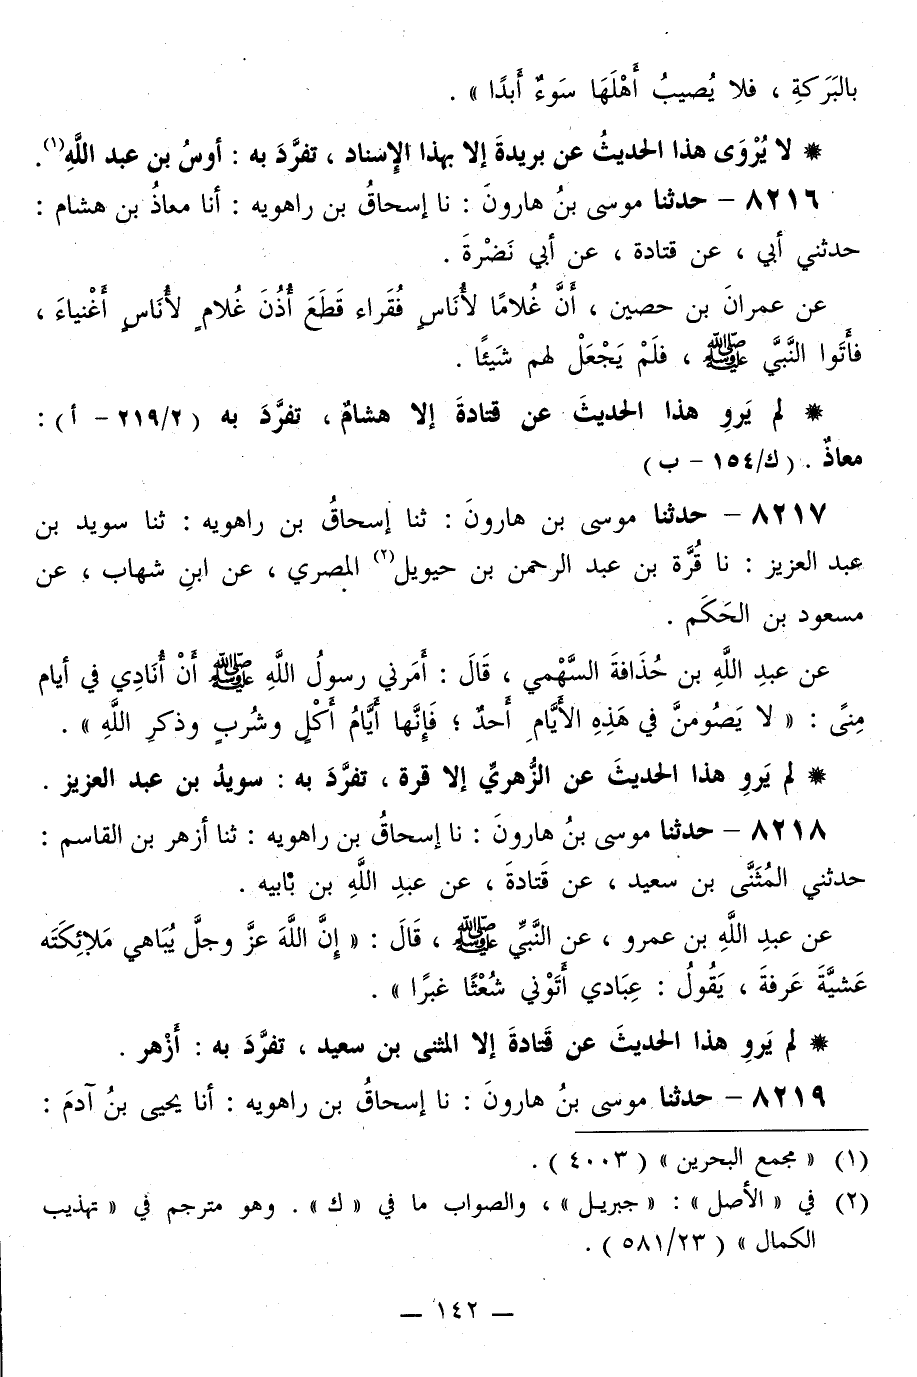 بالبَرَكةِ ، فلا يُصيبُ أَهْلَهَا سَوءٌ أَبدًا » .
* لا يُرْوَى هذا الحديثُ عن بريدةَ إلا بهذا الإِسناد ، تفرَّدَ به : أوسُ بن عبد اللَّهِ(١).
٨٢١٦ – حدثنا موسى بنُ هارونَ : نا إسحاقُ بن راهويه : أنا معاذُ بن هشام :
حدثني أبي ، عن قتادة ، عن أبي نَضْرةَ .
عن عمرانَ بن حصين ، أَنَّ غُلامًا لأُنَاسٍ فُقَراء قَطَعَ أُذُنَ غُلامٍ لأُنَاسٍ أَغْنياءَ ،
فأَتَوا النَّبيَّ ﷺ ، فلَمْ يَجْعَلْ لهم شَيئًا .
* لم يَروِ هذا الحديثَ عن قتادةَ إلا هشامٌ ، تفرَّدَ به ( ٢١٩/٢ – أ ) :
معاذٌ . ( ك/١٥٤ – ب )
٨٢١٧ – حدثنا موسى بن هارونَ : ثنا إسحاقُ بن راهويه : ثنا سويد بن
عبد العزيز : نا قُرَّة بن عبد الرحمن بن حيويل(٢) المصري ، عن ابنِ شهاب ، عن
مسعود بن الحَكَم .
عن عبدِ اللَّهِ بن حُذَافةَ السَّهْمي ، قَالَ : أَمَرني رسولُ اللَّهِ ﷺ أَنْ أُنَادِي في أيام
مِنىً : « لا يَصُومنَّ في هَذِهِ الأَيَّامِ أَحدٌ ؛ فَإِنَّها أَيَّامُ أَكْلٍ وشُربٍ وذكرِ اللَّهِ » .
* لم يَروِ هذا الحديثَ عن الزُّهريِّ إلا قرة ، تفرَّدَ به : سويدُ بن عبد العزيز .
٨٢١٨ – حدثنا موسى بنُ هارونَ : نا إسحاقُ بن راهويه : ثنا أزهر بن القاسم :
حدثني المُثَنَّى بن سعيد ، عن قَتادةَ ، عن عبدِ اللَّهِ بن بْابيه .
عن عبدِ اللَّهِ بن عمرو ، عن النَّبيِّ ﷺ ، قَالَ : « إِنَّ اللَّهَ عزَّ وجلَّ يُبَاهي مَلائِكتَه
عَشيَّةَ عَرفةَ ، يَقُولُ : عِبَادي أَتَوْني شُعْثًا غبرًا » .
* لم يَروِ هذا الحديثَ عن قَتادةَ إلا المثنى بن سعيد ، تفرَّدَ به : أَزْهر .
٨٢١٩ – حدثنا موسى بنُ هارونَ : نا إسحاقُ بن راهويه : أنا يحيى بنُ آدمَ :
(١) « مجمع البحرين » ( ٤٠٠٣ ) .
(٢) في « الأصل » : « جبريل » ، والصواب ما في « ك » . وهو مترجم في « تهذيب
الكمال » ( ٥٨١/٢٣ ) .
— ١٤٢ —